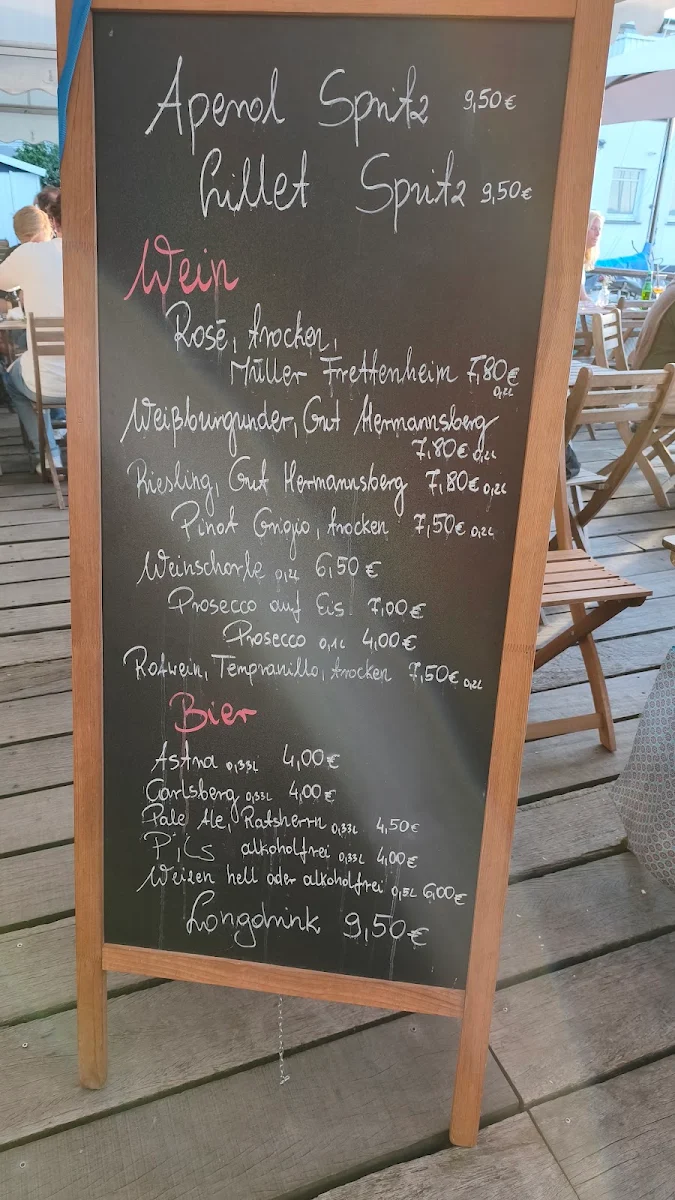 Aperol Spritz 9,50€
Lillet Spritz 9,50€
Wein
Rosé, trocken,
Müller Frettenheim 7,80€ 0,2L
Weißburgunder, Gut Hermannsberg
7,80€ 0,2L
Riesling, Gut Hermannsberg 7,80€ 0,2L
Pinot Grigio, trocken 7,50€ 0,2L
Weinschorle 0,2L 6,50€
Prosecco auf Eis 7,00€
Prosecco 0,1L 4,00€
Rotwein, Tempranillo, trocken 7,50€ 0,2L
Bier
Astra 0,33L 4,00€
Carlsberg 0,33L 4,00€
Pale Ale, Ratsherrn 0,33L 4,50€
Pils alkoholfrei 0,33L 4,00€
Weizen hell oder alkoholfrei 0,5L 6,00€
Longdrink 9,50€